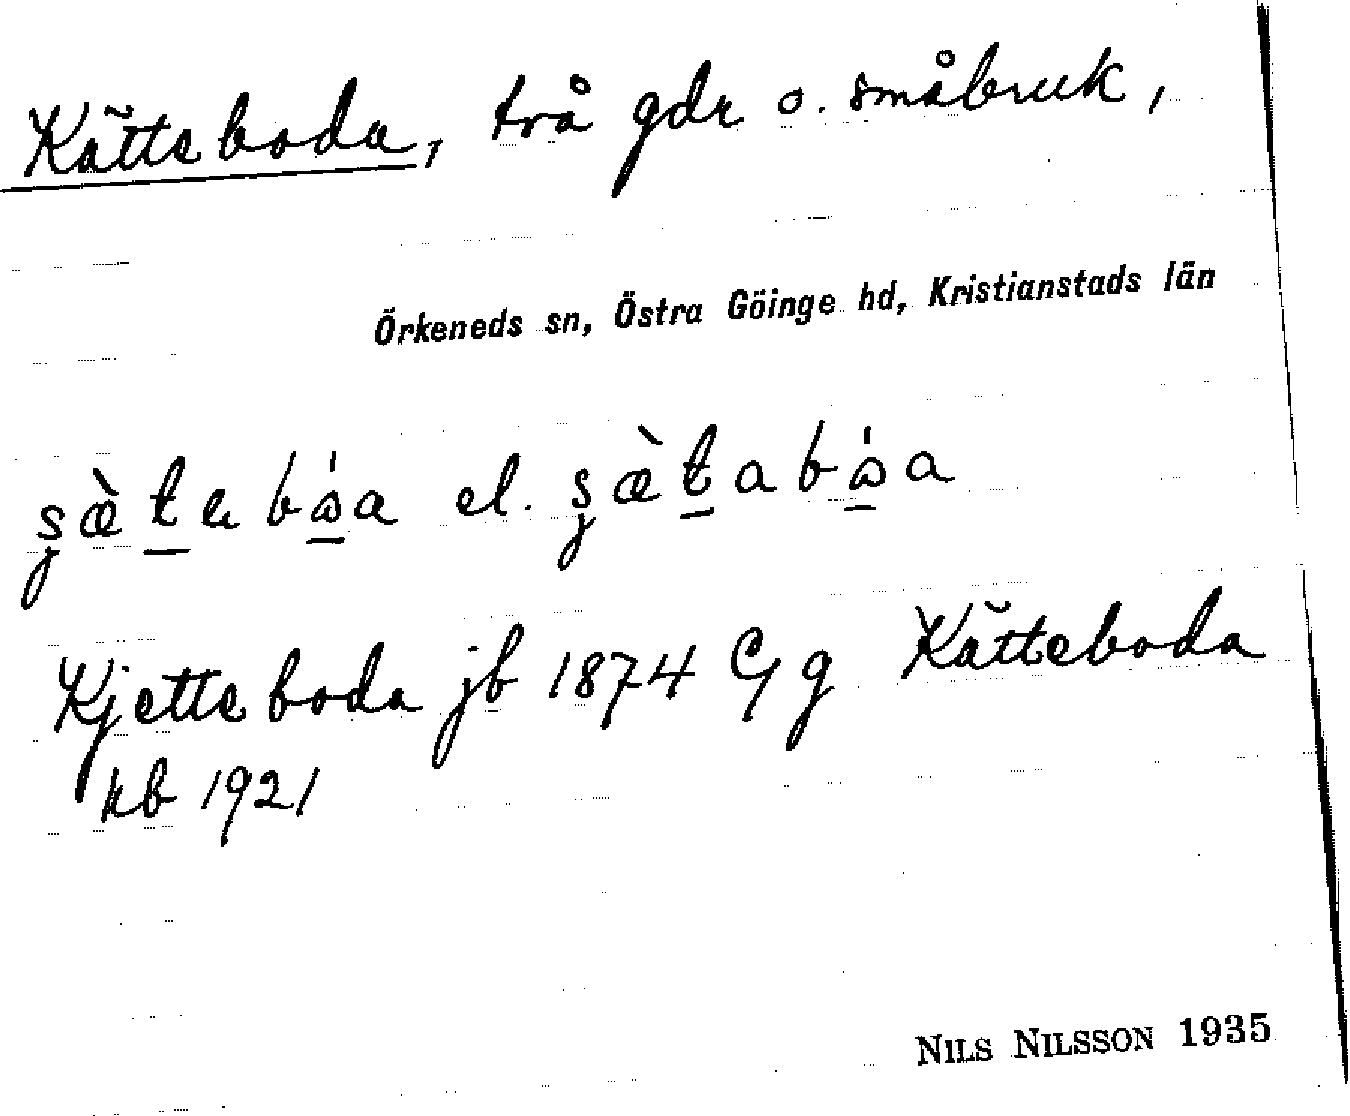 Kätteboda, två gdr o. småbruk,
Örkeneds sn, Östra Göinge hd, Kristianstads län
el.
Kjetteboda jb 1874 Gg Kätteboda
kb 1921
NILS NILSSON 1935